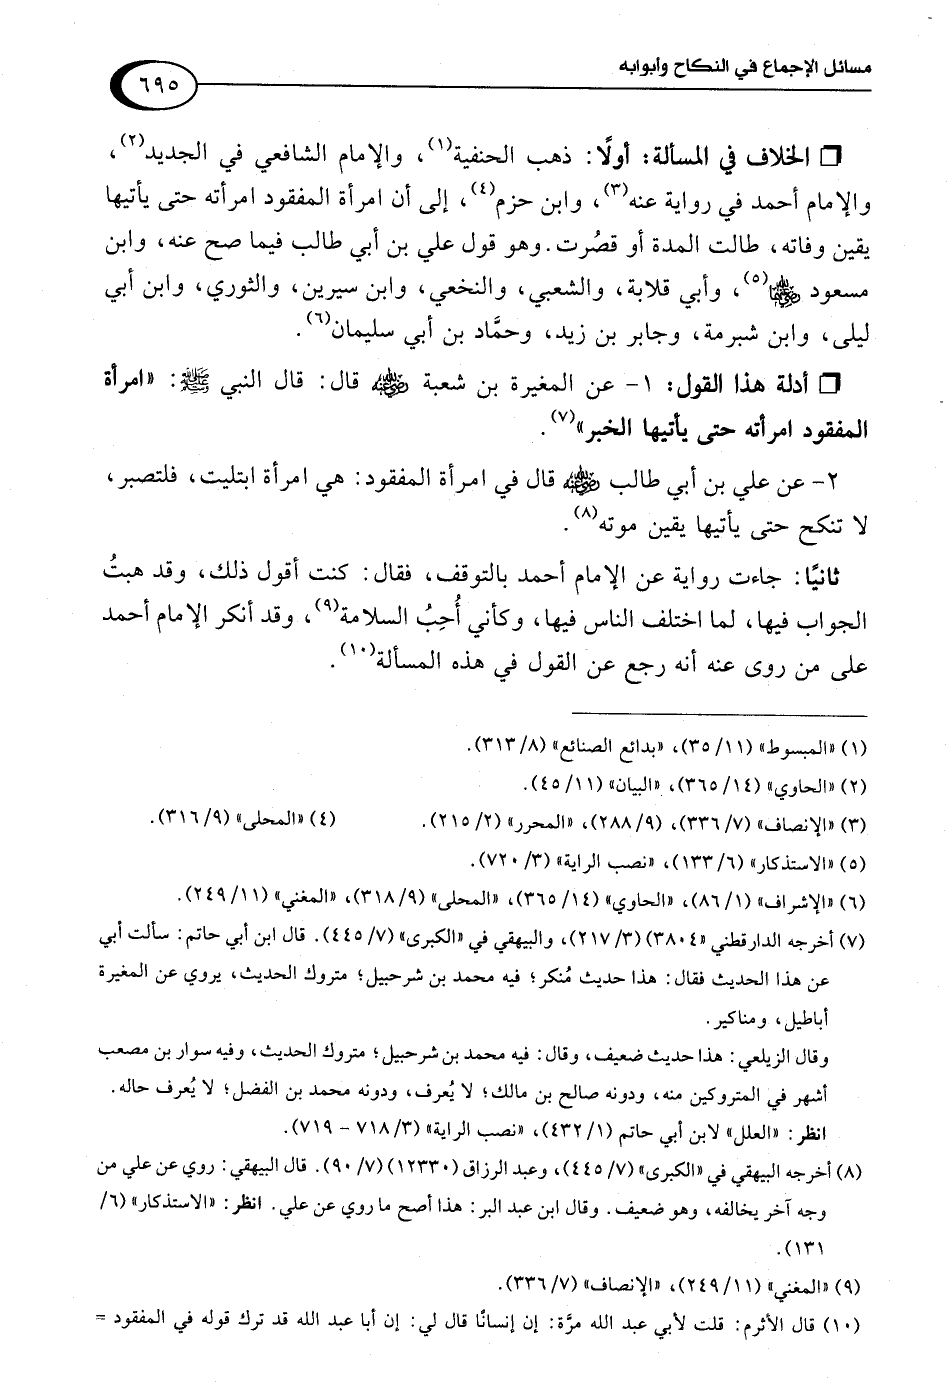 مسائل الإجماع في النكاح وأبوابه
٦٩٥
❒ الخلاف في المسألة: أولًا: ذهب الحنفية(١)، والإمام الشافعي في الجديد(٢)،
والإمام أحمد في رواية عنه(٣)، وابن حزم(٤)، إلى أن امرأة المفقود امرأته حتى يأتيها
يقين وفاته، طالت المدة أو قصُرت. وهو قول علي بن أبي طالب فيما صح عنه، وابن
مسعود رضي الله عنهما(٥)، وأبي قلابة، والشعبي، والنخعي، وابن سيرين، والثوري، وابن أبي
ليلى، وابن شبرمة، وجابر بن زيد، وحمَّاد بن أبي سليمان(٦).
❒ أدلة هذا القول: ١- عن المغيرة بن شعبة رضي الله عنه قال: قال النبي ﷺ: «امرأة
المفقود امرأته حتى يأتيها الخبر»(٧).
٢- عن علي بن أبي طالب رضي الله عنه قال في امرأة المفقود: هي امرأة ابتليت، فلتصبر،
لا تنكح حتى يأتيها يقين موته(٨).
ثانيًا: جاءت رواية عن الإمام أحمد بالتوقف، فقال: كنت أقول ذلك، وقد هبتُ
الجواب فيها، لما اختلف الناس فيها، وكأني أُحِبُ السلامة(٩)، وقد أنكر الإمام أحمد
على من روى عنه أنه رجع عن القول في هذه المسألة(١٠).
(١) «المبسوط» (١١/ ٣٥)، «بدائع الصنائع» (٨/ ٣١٣).
(٢) «الحاوي» (١٤/ ٣٦٥)، «البيان» (١١/ ٤٥).
(٣) «الإنصاف» (٧/ ٣٣٦)، (٩/ ٢٨٨)، «المحرر» (٢/ ٢١٥). (٤) «المحلى» (٩/ ٣١٦).
(٥) «الاستذكار» (٦/ ١٣٣)، «نصب الراية» (٣/ ٧٢٠).
(٦) «الإشراف» (١/ ٨٦)، «الحاوي» (١٤/ ٣٦٥)، «المحلى» (٩/ ٣١٨)، «المغني» (١١/ ٢٤٩).
(٧) أخرجه الدارقطني «٣٨٠٤) (٣/ ٢١٧)، والبيهقي في «الكبرى» (٧/ ٤٤٥). قال ابن أبي حاتم: سألت أبي
عن هذا الحديث فقال: هذا حديث مُنكر؛ فيه محمد بن شرحبيل؛ متروك الحديث، يروي عن المغيرة
أباطيل، ومناكير.
وقال الزيلعي: هذا حديث ضعيف، وقال: فيه محمد بن شرحبيل؛ متروك الحديث، وفيه سوار بن مصعب
أشهر في المتروكين منه، ودونه صالح بن مالك؛ لا يُعرف، ودونه محمد بن الفضل؛ لا يُعرف حاله.
انظر: «العلل» لابن أبي حاتم (١/ ٤٣٢)، «نصب الراية» (٣/ ٧١٨ – ٧١٩).
(٨) أخرجه البيهقي في «الكبرى» (٧/ ٤٤٥)، وعبد الرزاق (١٢٣٣٠) (٧/ ٩٠). قال البيهقي: روي عن علي من
وجه آخر يخالفه، وهو ضعيف. وقال ابن عبد البر: هذا أصح ما روي عن علي. انظر: «الاستذكار» (٦/
١٣١).
(٩) «المغني» (١١/ ٢٤٩)، «الإنصاف» (٧/ ٣٣٦).
(١٠) قال الأثرم: قلت لأبي عبد الله مرَّة: إن إنسانًا قال لي: إن أبا عبد الله قد ترك قوله في المفقود =